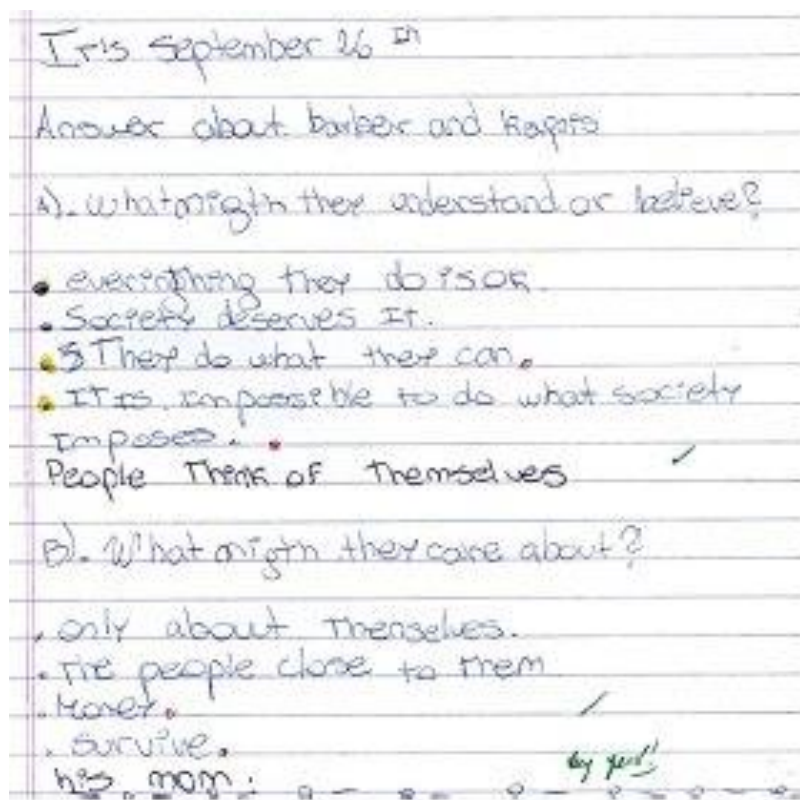 It is September 26 th
Answer about barber and
A). what migth they understand or believe?
everinthing they do is ok.
Society deserves It.
They do what they can.
IT IS impossible to do what society
Imposes.
People Think of Themselves
B). What migth they care about?
only about Themselves.
The people close to them
Money.
survive.
his mom.